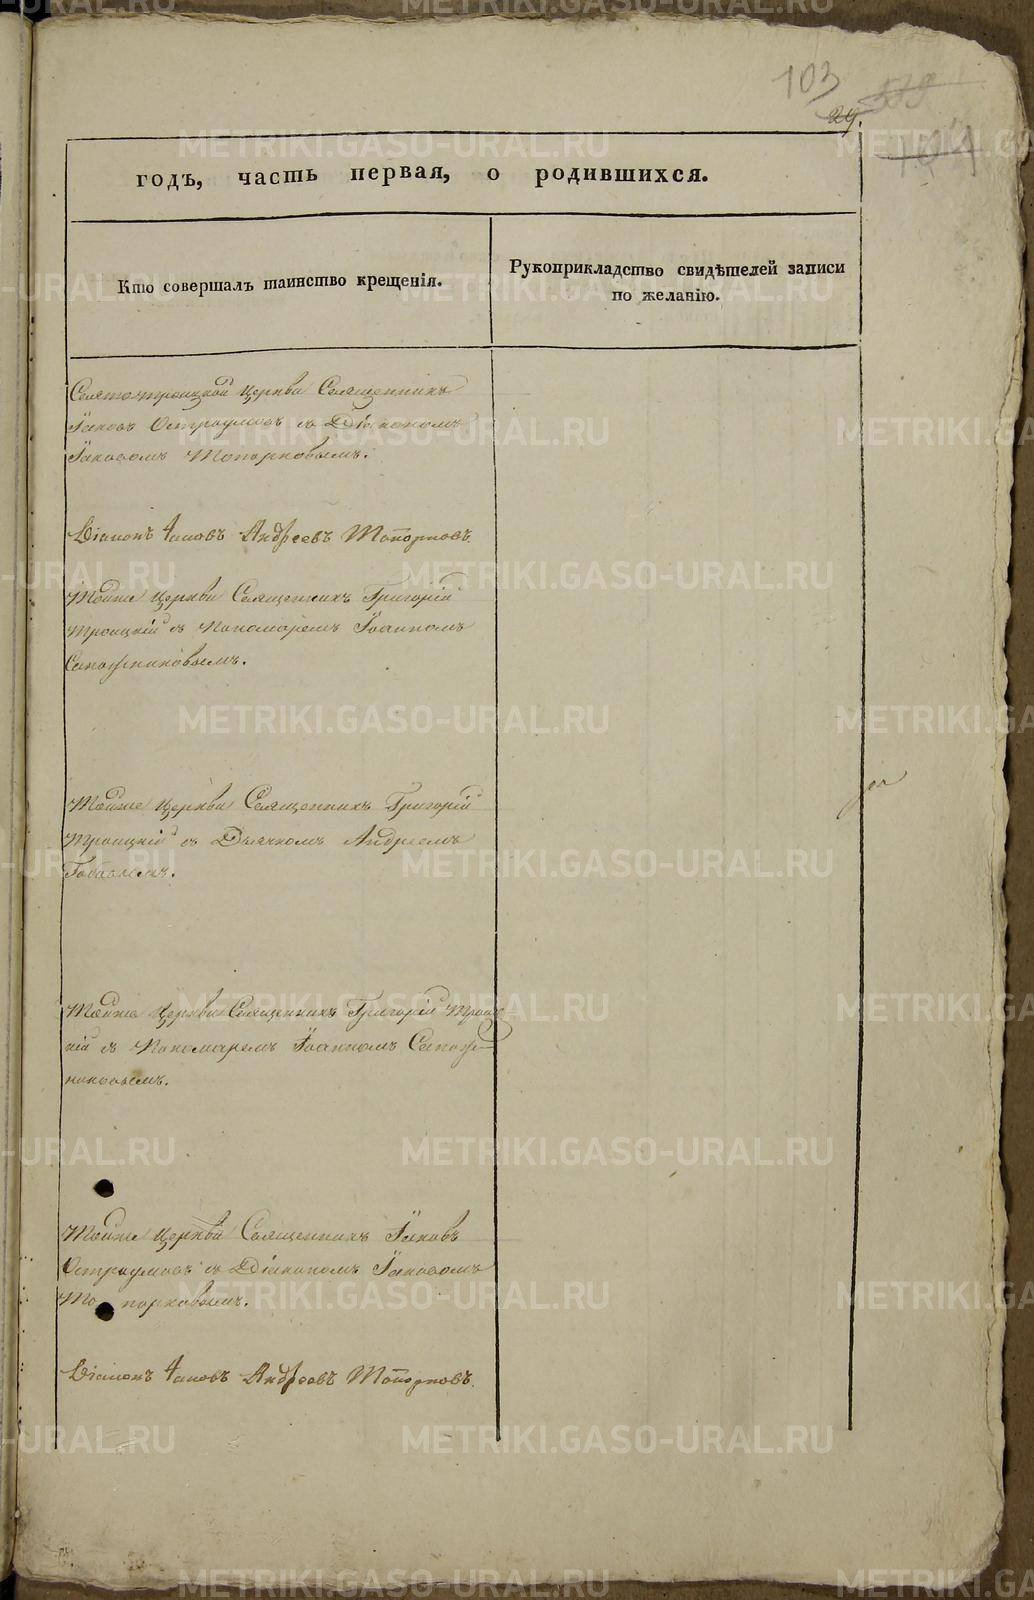 103
29.
годъ, часть первая, о родившихся.
Кто совершалъ таинство крещенія.
Рукоприкладство свидѣтелей записи
по желанію.
Святотроицкой Церкви Священникъ
Іаковъ Остроумовъ съ Діакономъ
Іаковомъ Топорковымъ.
Діаконъ Іаковъ Андреевъ Топорковъ.
Тойже Церкви Священникъ Григорій
Троицкій съ Пономаремъ Іоанномъ
Сапожниковымъ.
Тойже Церкви Священникъ Григорій
Троицкій съ Дьячкомъ Андреемъ
Тойже Церкви Священникъ Григорій Троиц-
кій съ Пономаремъ Іоанномъ Сапож-
никовымъ.
Тойже Церкви Священникъ Іаковъ
Остроумовъ съ Діакономъ Іаковомъ
Топорковымъ.
Діаконъ Іаковъ Андреевъ Топорковъ.
METRIKI.GASO-URAL.RU